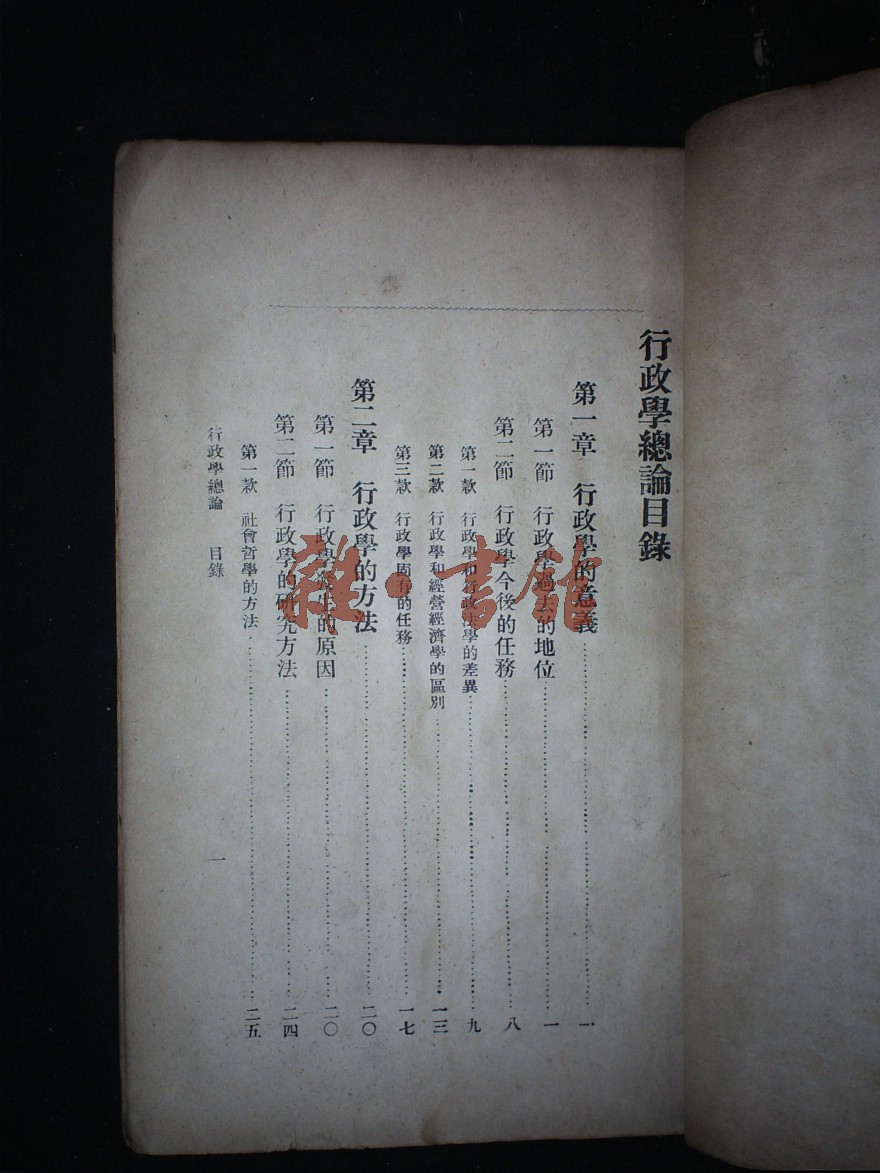 行政學總論目錄
第一章 行政學的意義……一
第一節 行政學過去的地位……一
第二節 行政學今後的任務……八
第一款 行政學和行政法學的差異……九
第二款 行政學和經營經濟學的區別……一三
第三款 行政學固有的任務……一七
第二章 行政學的方法……二〇
第一節 行政學發生的原因……二〇
第二節 行政學的研究方法……二四
第一款 社會哲學的方法……二五
行政學總論 目錄
一
雜·書館